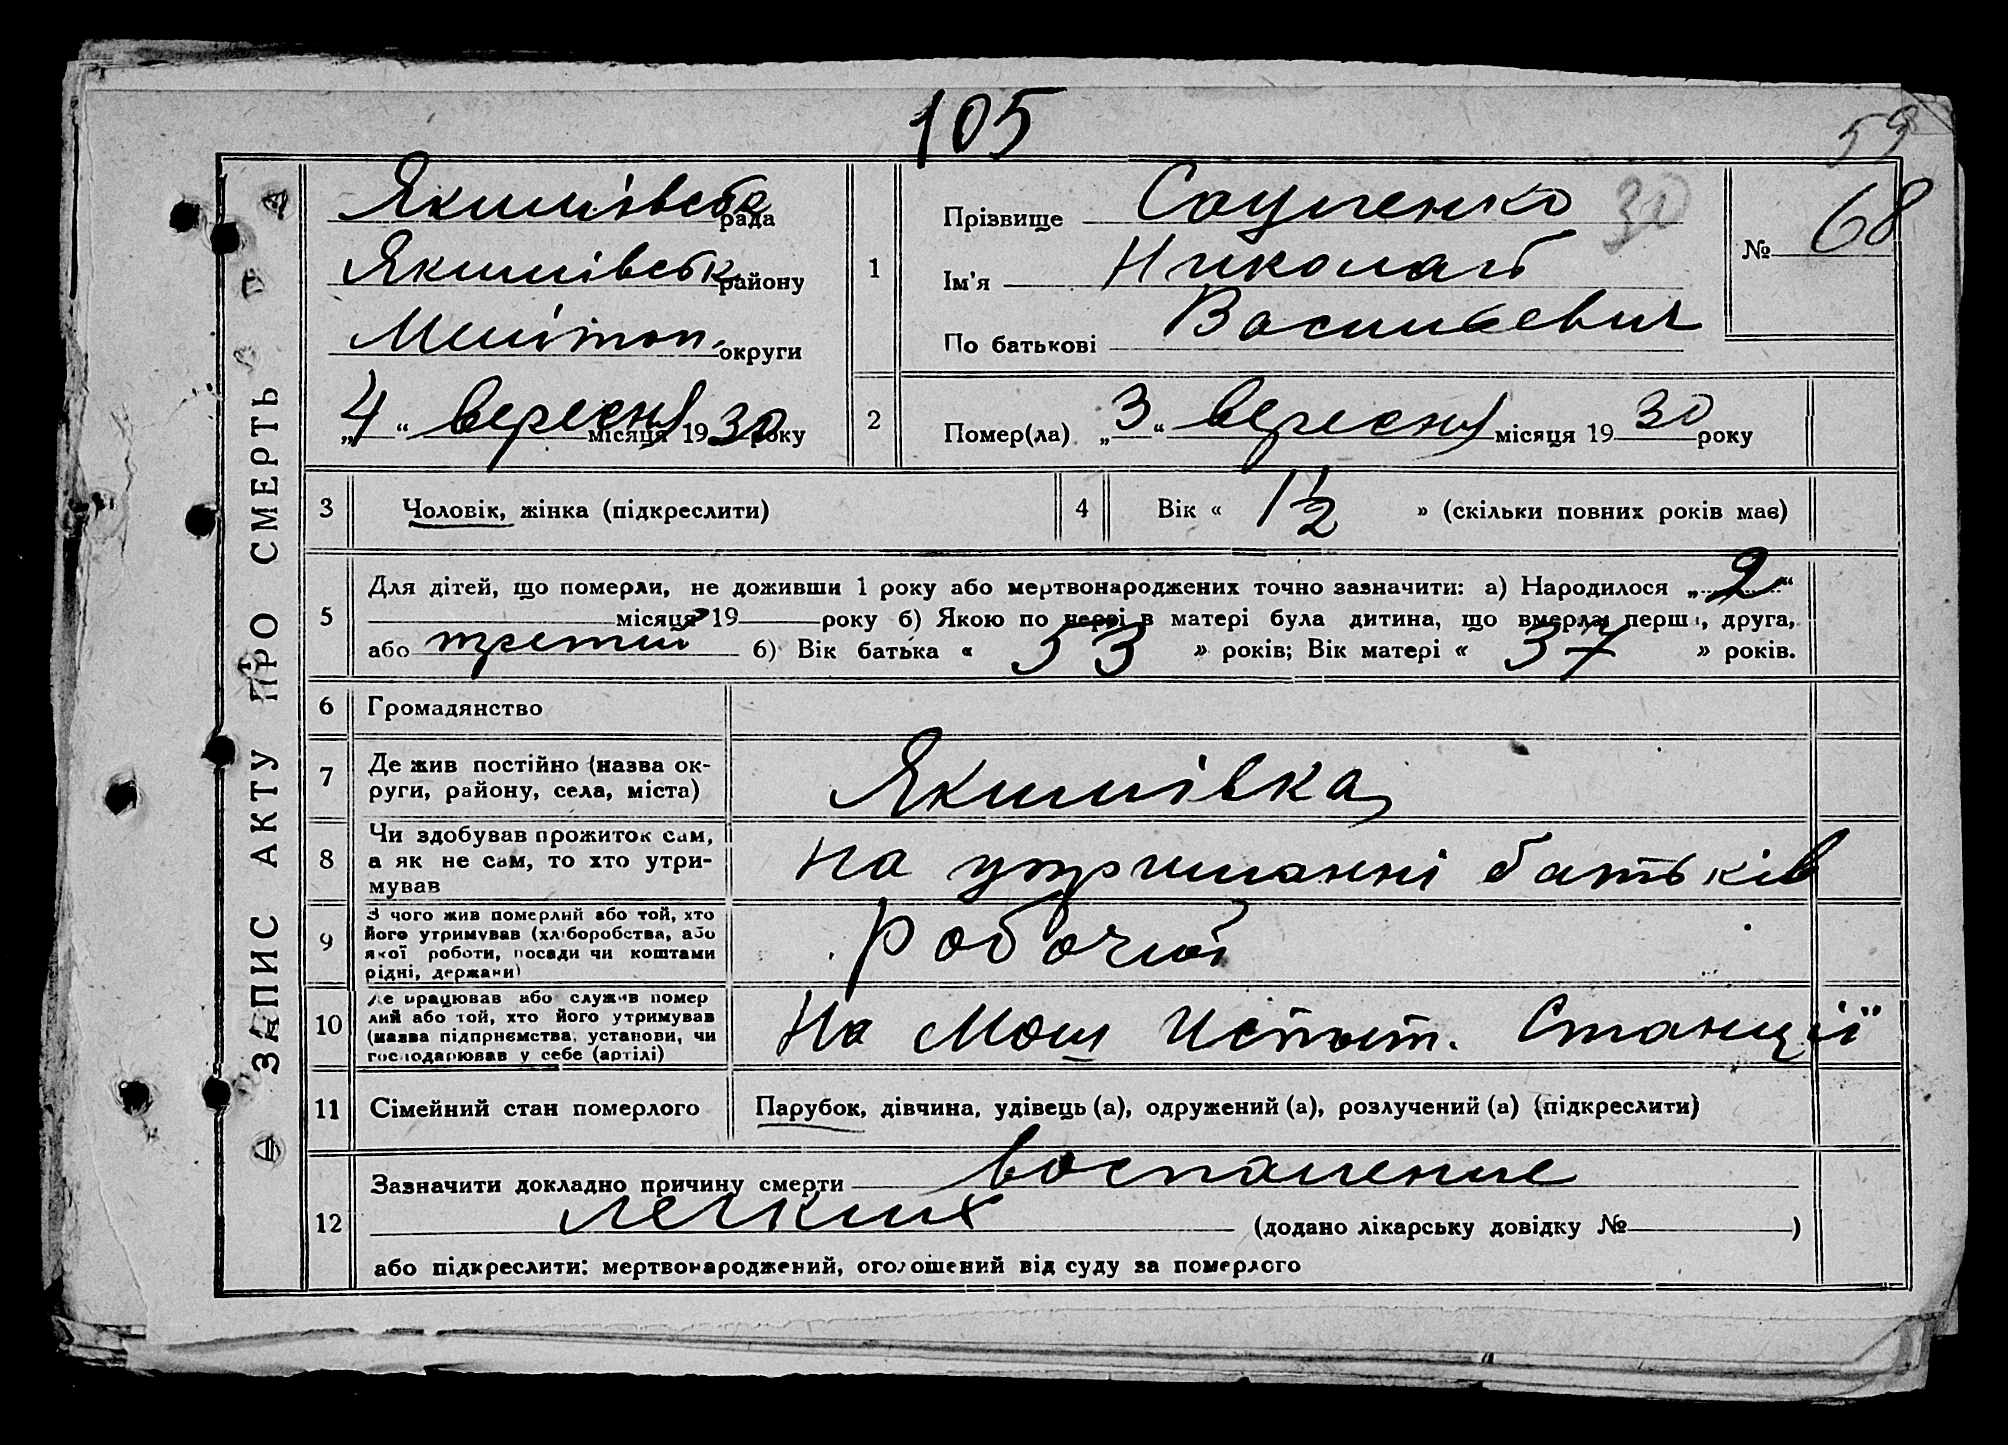 105
59
ЗАПИС АКТУ ПРО СМЕРТЬ
Якимівська рада
Якимівськ. району
Мелітоп. округи
„4“ вересня місяця 1930 року
1
Прізвище 30
Ім'я Николай
По батькові Васильевич
№ 68
2
Помер(ла) „3“ вересня місяця 1930 року
3 Чоловік, жінка (підкреслити)
4 Вік « 1½ » (скільки повних років має)
5 Для дітей, що померли, не доживши 1 року або мертвонароджених точно зазначити: а) Народилося „2“
місяця 19 року б) Якою по черзі в матері була дитина, що вмерла: перша, друга,
або третий б) Вік батька « 53 » років; Вік матері « 37 » років.
6 Громадянство
7 Де жив постійно (назва ок-
руги, району, села, міста)
Якимівка
8 Чи здобував прожиток сам,
а як не сам, то хто утри-
мував
на утриманні батьків
9 З чого жив померлий або той, хто
його утримував (хліборобства, або
якої роботи, посади чи коштами
рідні, держави)
Робочий
10 Де працював або служив помер
лий або той, хто його утримував
(назва підприємства, установи, чи
господарював у себе (артілі)
На Маш Испыт. Станції
11 Сімейний стан померлого
Парубок, дівчина, удівець (а), одружений (а), розлучений (а) (підкреслити)
12 Зазначити докладно причину смерти воспаление
легких (додано лікарську довідку № )
або підкреслити: мертвонароджений, оголошений від суду за померлого